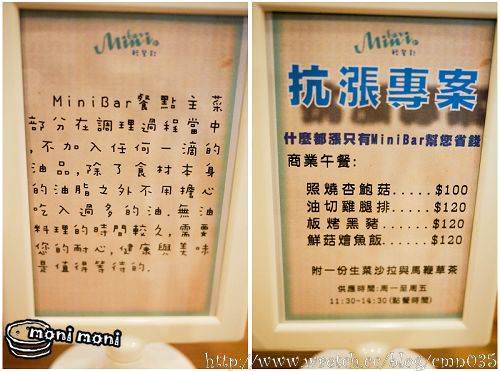 Mini Bar
輕餐飲
MiniBar餐點主菜
部分在調理過程當中
,不加入任何一滴的
油品,除了食材本身
的油脂之外不用擔心
吃入過多的油,無油
料理的時間較久,需要
您的耐心,健康與美味
是值得等待的.
moni moni
Mini Bar
輕餐飲
抗漲專案
什麼都漲只有MiniBar幫您省錢
商業午餐:
照燒杏鮑菇.....$100
油切雞腿排.....$120
板烤黑豬.......$120
鮮菇燴魚飯.....$120
附一份生菜沙拉與馬鞭草茶
供應時間:周一至周五
11:30-14:30(點餐時間)
http://www.wretch.cc/blog/cmp035